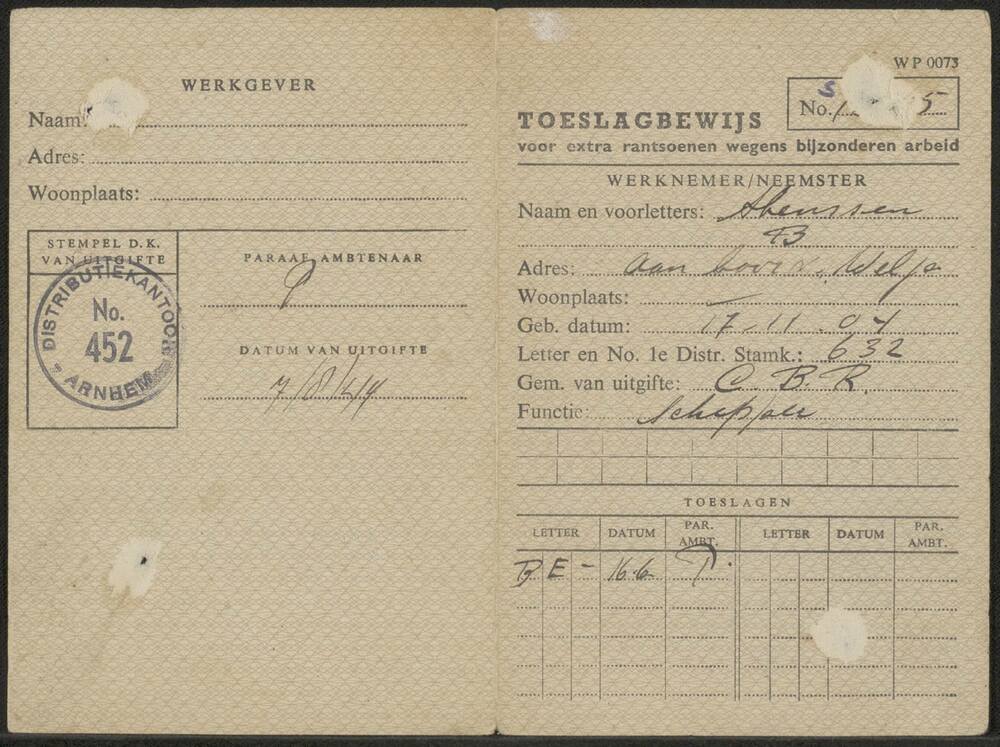 WERKGEVER
Naam:
Adres:
Woonplaats:
STEMPEL D.K.
VAN UITGIFTE
DISTRIBUTIEKANTOOR
No.
452
ARNHEM
PARAAF AMBTENAAR
DATUM VAN UITGIFTE
7/8/44
WP 0073
S
No. 1 5
TOESLAGBEWIJS
voor extra rantsoenen wegens bijzonderen arbeid
WERKNEMER/NEEMSTER
Naam en voorletters:
B
Adres: aan boord Velp
Woonplaats: —
Geb. datum: 17-11-04
Letter en No. 1e Distr. Stamk.: 632
Gem. van uitgifte: C.B.R.
Functie: Schipper
TOESLAGEN
LETTER DATUM PAR. AMBT. LETTER DATUM PAR. AMBT.
B E - 16-6